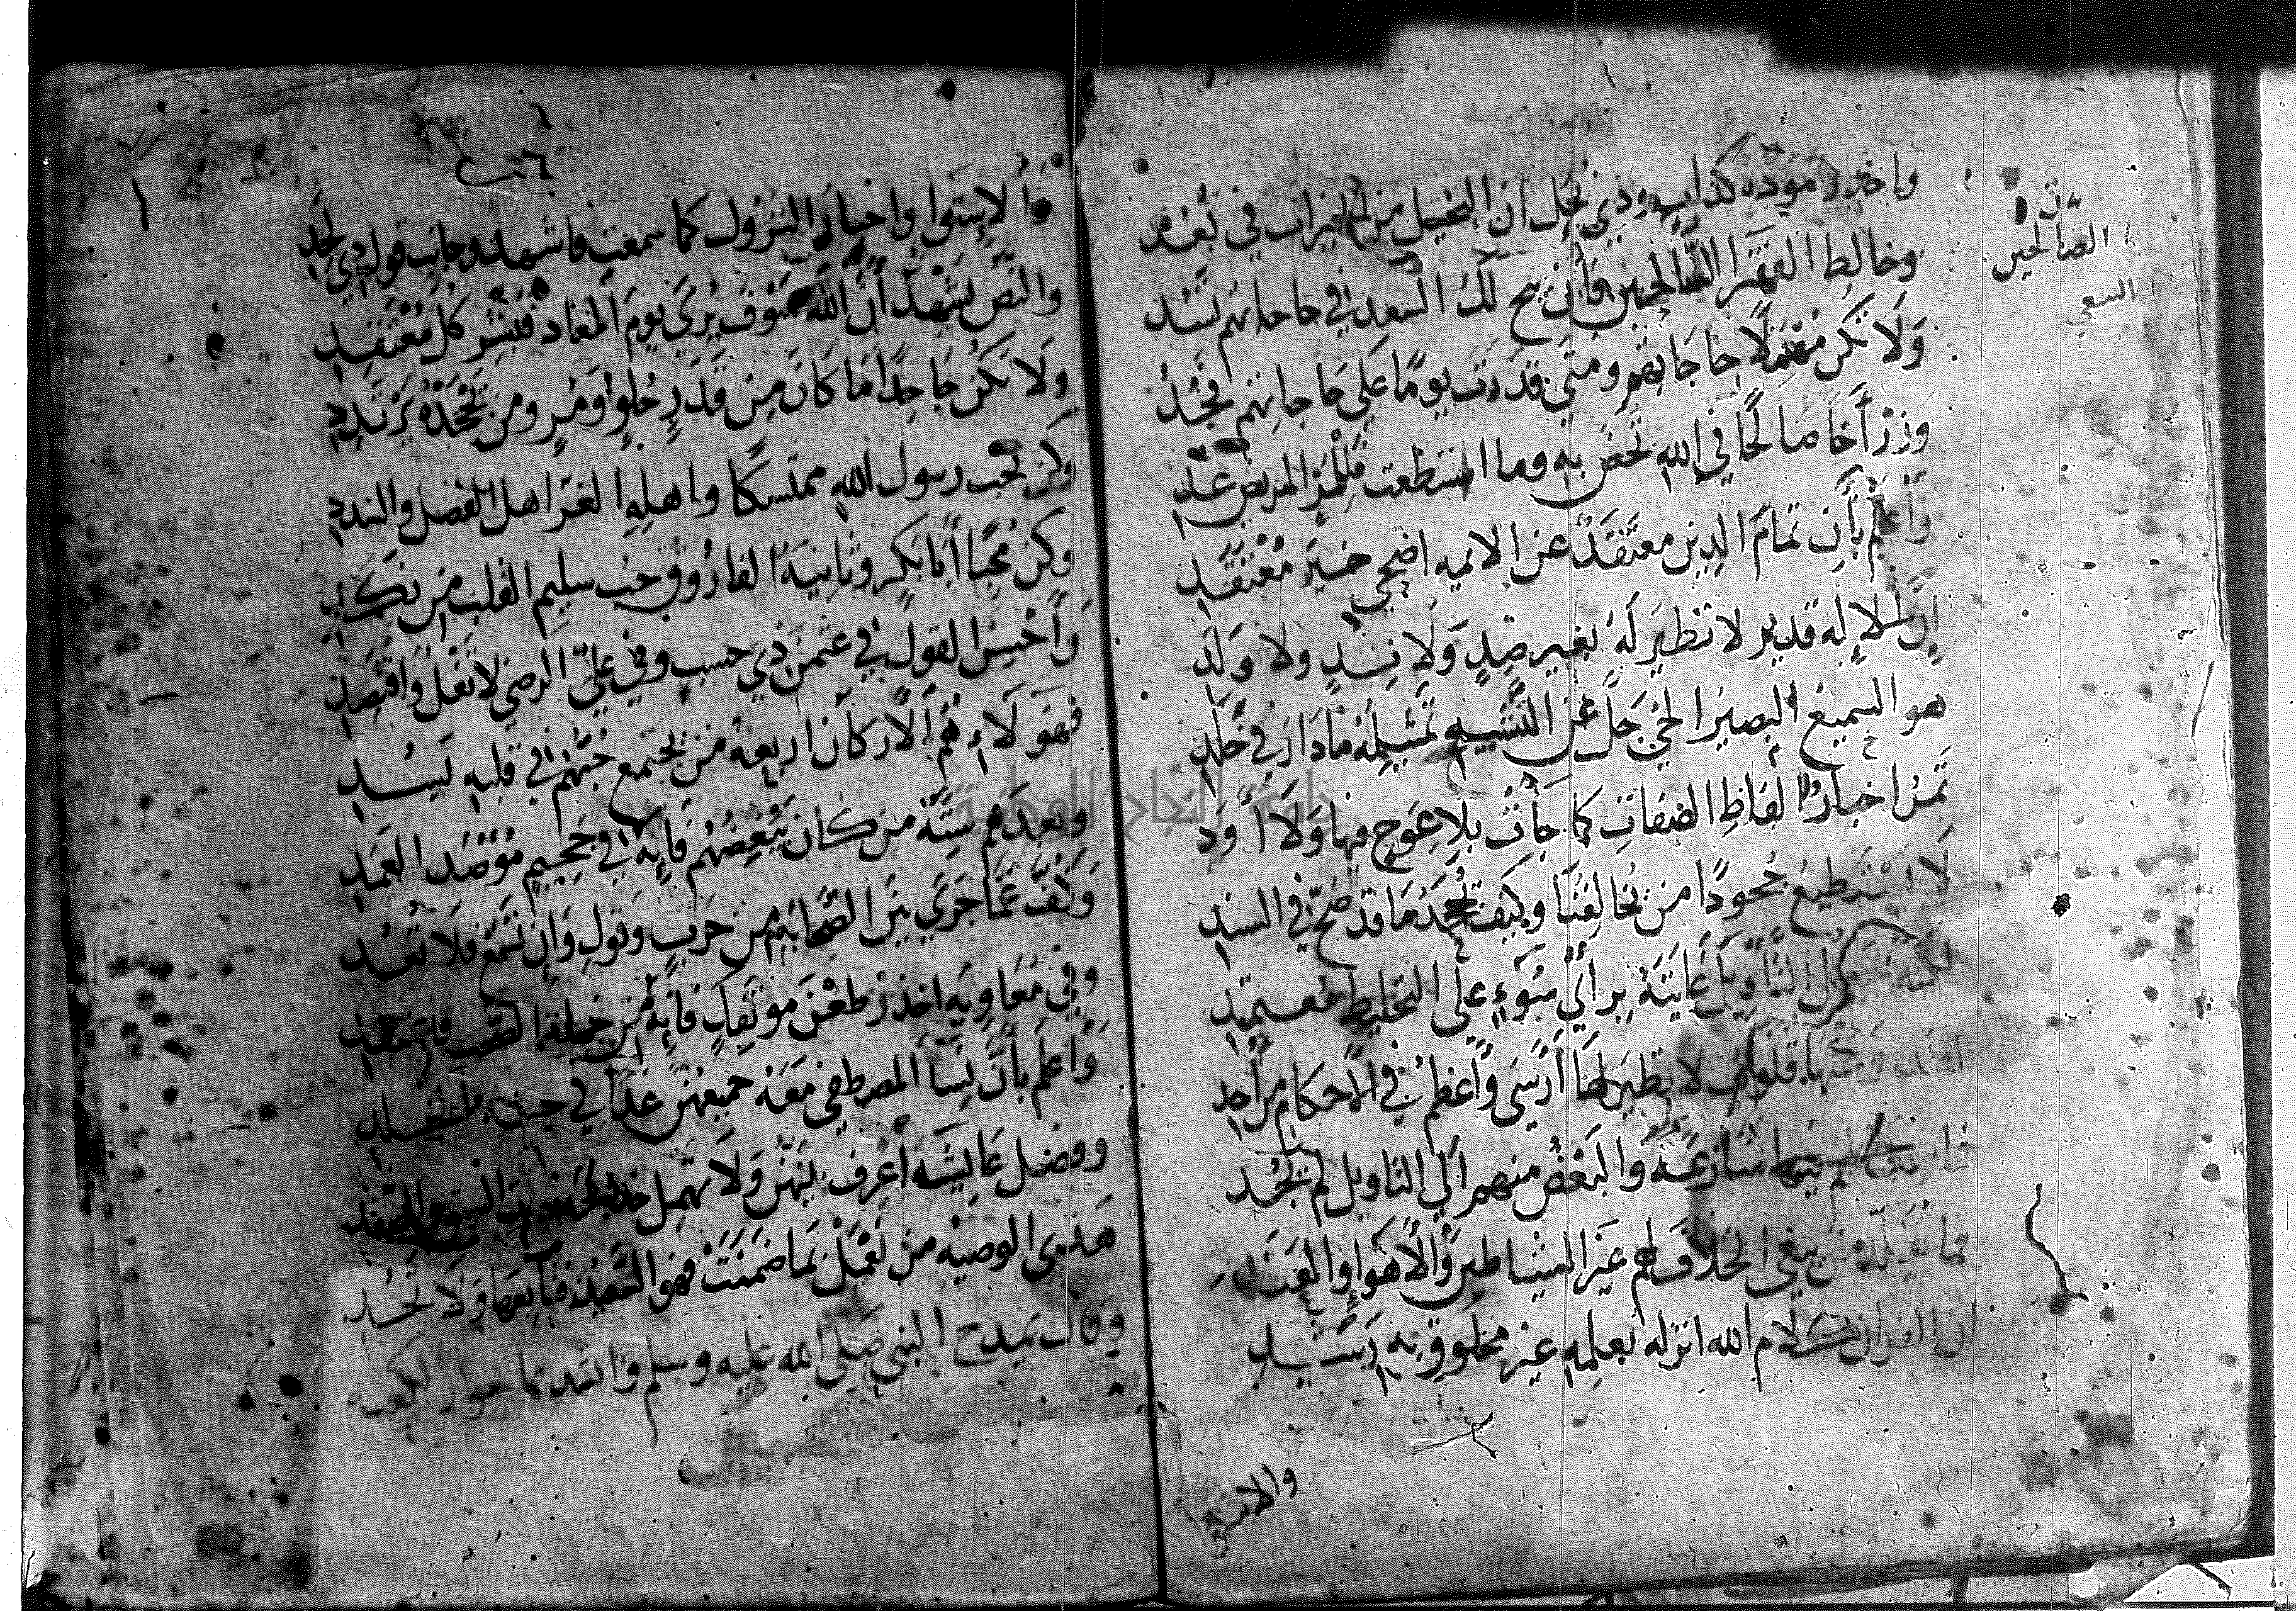 واحذر مودة كذاب وذي بخل ان البخيل من الخيرات في بعد
وخالط الفقرا الصالحين فان يتح لك السعد في حاجاتهم تسد
ولا تكن مهملا حاجاتهم ومتى قدرت يوما على حاجاتهم فجد
وزر أخا صالحا في الله تحض به وما استطعت فللمرء المريض عد
واعلم بأن تمام الدين معتقد عن الايمه اضحى خير معتقد
ان الاله قدير لا نظير له بغير ضد ولا ند ولا ولد
هو السميع البصير الحي جل عن التشبيه تمثيله ما دار في خلد
تمر اخبار الفاظ الصفات كما جأت بلا عوج فيها ولا أود
لا نستطيع جحودا من مخالفنا وكيف نجحد ما قد صح في السند
التأويل غايته برأي سوء على التخليط معتمد
قلوب لا نظير لها أرسى وأعظم في الاحكام من احد
منازعة والبعض منهم الى التاويل لم يجد
يبغي الخلاف لهم غير الشياطين والاهوا والفند
ان القران كلام الله انزله بعلمه غير مخلوق به رشد
والاستوا
ن
الصالحين
السعي
والاستوا واخبار النزول كما سمعت فاشهد وجانب قول ذي لحد
والنص يشهد أن الله سوف يرى يوم المعاد فبشر كل معتقد
ولا تكن جاحدا ما كان من قدر حلو ومر ومن يجحده يرتدد
وكن بحب رسول الله ممتسكا واهله الغر اهل الفضل والسدد
وكن محبا أبا بكر وثانيه الفاروق حب سليم القلب من نكد
وأحسن القول في عثمن ذي حسب وفي علي الرضي لا تغل واقتصد
فهولاء هم الاركان اربعة من يجتمع حبهم في قلبه يسد
وبعدهم ستة من كان يبغضهم فانه في جحيم موصد العمد
وكف عما جرى بين الصحابة من حرب وقول وان تسمع فلا تعد
وفي معاويه احذر طعن موتفك فانه من جملة الصحب فاعتقد
واعلم بأن نسا المصطفى معه جميعهن غدا في جنة الخلد
وفضل عايشه أعرف بينهن ولا تهمل
هذي الوصيه من يعمل بما ضمنت فهو السعيد فتابعها ولا تحد
وقال يمدح النبي صلى الله عليه وسلم وانشدها حول الكعبه